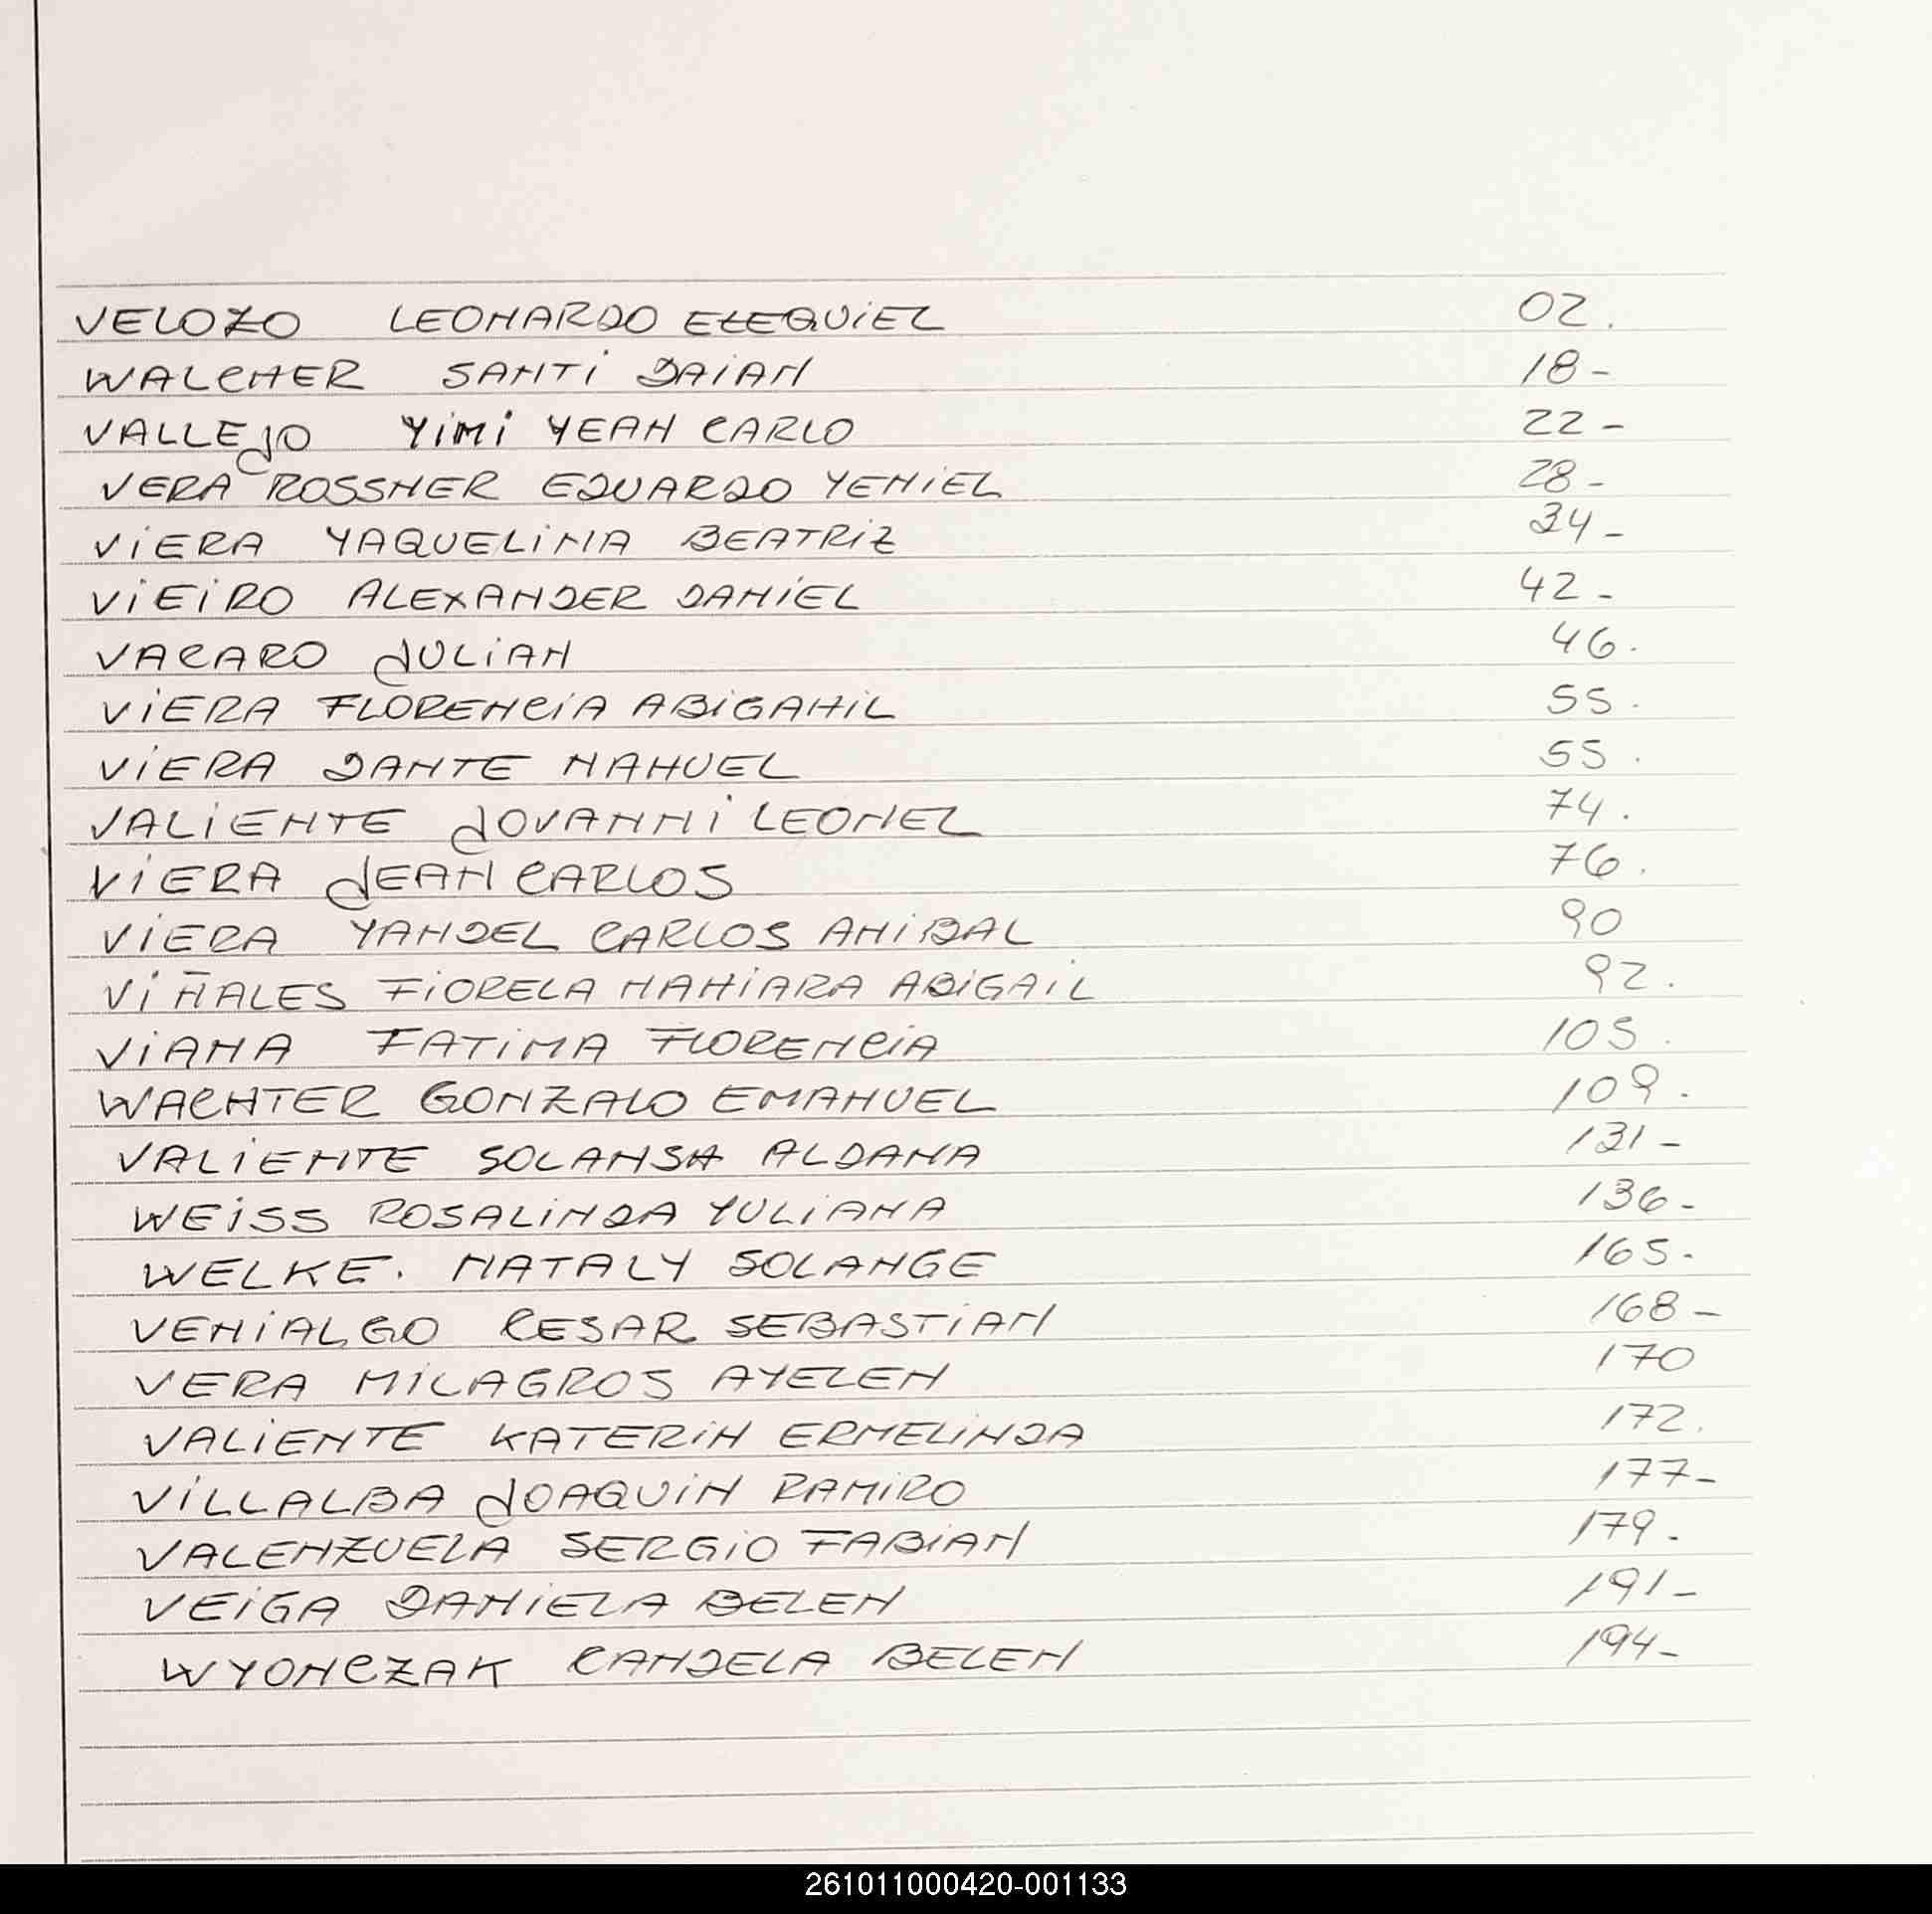 VELOZO LEONARDO EZEQUIEL 02.
WALCHER SANTI DAIAN 18-
VALLEJO YIMI YEAN CARLO 22-
VERA ROSSNER EDUARDO YENIEL 28-
VIERA YAQUELINA BEATRIZ 34-
VIEIRO ALEXANDER DANIEL 42-
VACARO JULIAN 46.
VIERA FLORENCIA ABIGAHIL 55.
VIERA DANTE NAHUEL 55.
VALIENTE JOVANNI LEONEL 74.
VIERA JEAN CARLOS 76.
VIERA YANDEL CARLOS ANIBAL 90
VIÑALES FIORELA NAHIARA ABIGAIL 92.
VIANA FATIMA FLORENCIA 105.
WACHTER GONZALO EMANUEL 109.
VALIENTE SOLANSH ALDANA 131-
WEISS ROSALINDA YULIANA 136-
WELKE. NATALY SOLANGE 165-
VENIALGO CESAR SEBASTIAN 168-
VERA MILAGROS AYELEN 170
VALIENTE KATERIN ERMELINDA 172.
VILLALBA JOAQUIN RAMIRO 177-
VALENZUELA SERGIO FABIAN 179.
VEIGA DANIELA BELEN 191-
WYONCZAK CANDELA BELEN 194-
261011000420-001133